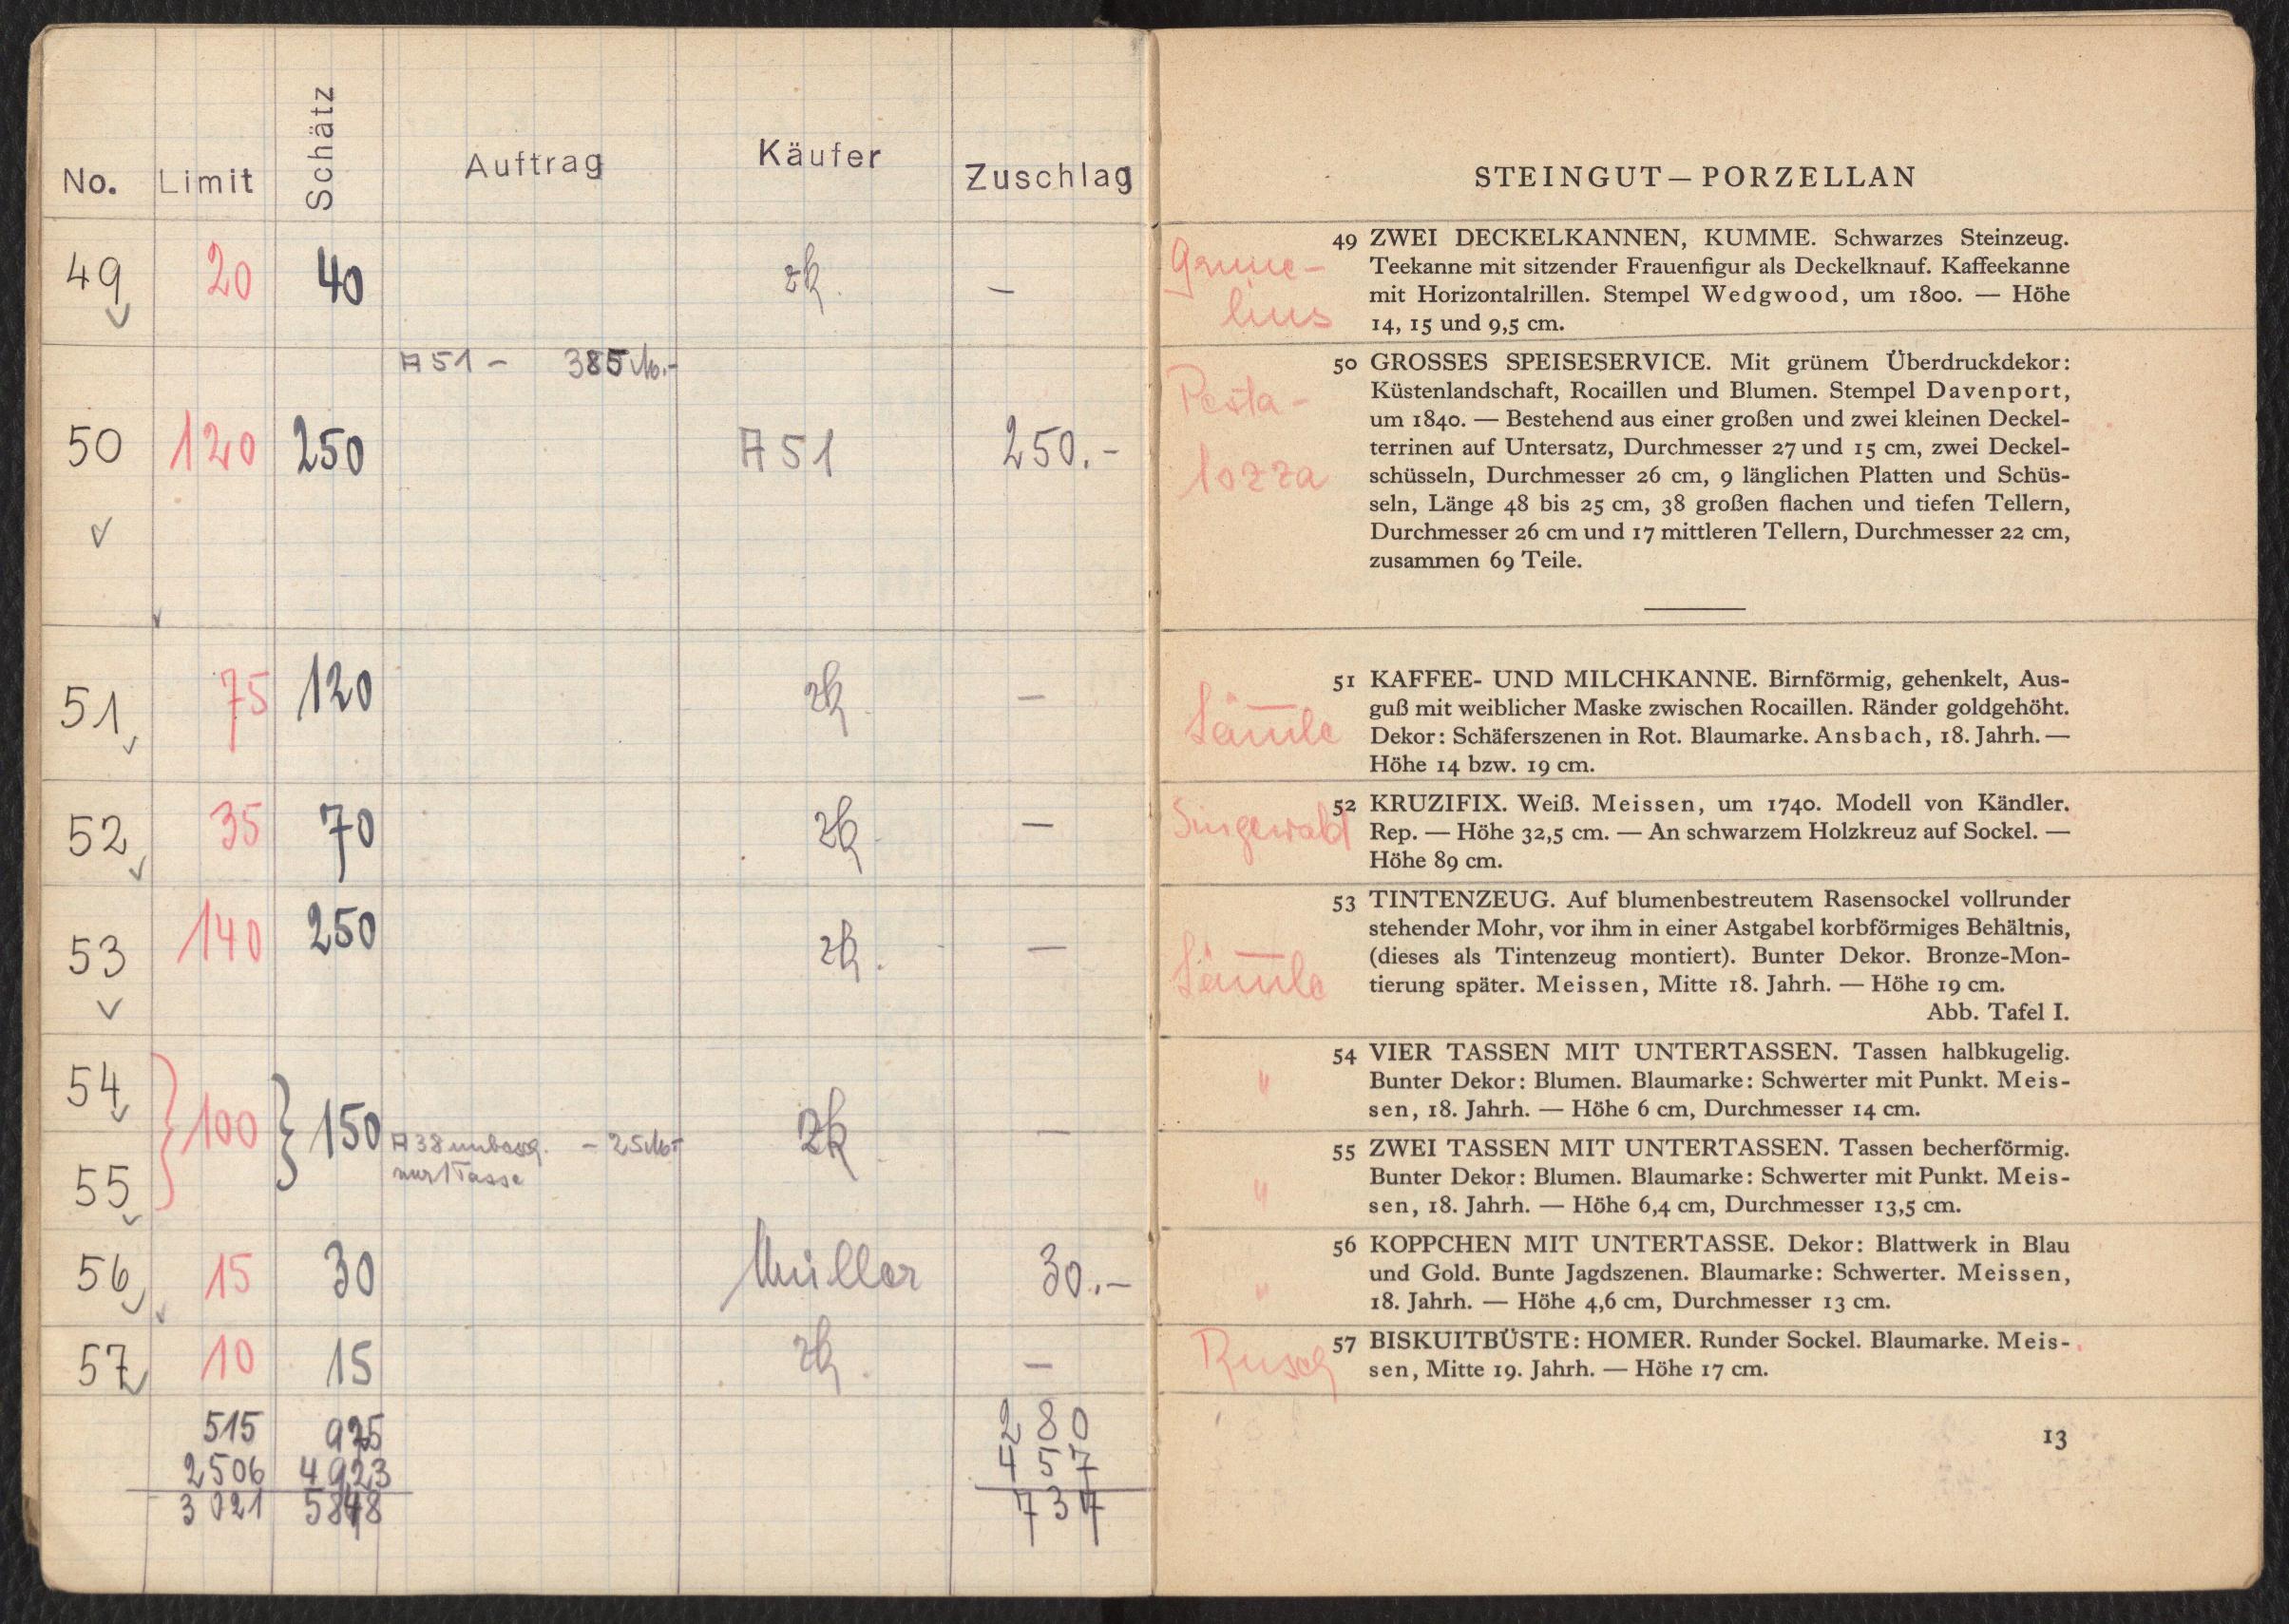 No. Limit Schätz Auftrag Käufer Zuschlag
49 20 40 zk. –
A 51 – 385 M.-
50 120 250 A 51 250.-
51 75 120 zk. –
52 35 70 zk. –
53 140 250 zk. –
54
} 100 } 150 A 38 unbesg. – 25 M.- zk. –
nur 1 Tasse
55
56 15 30 Müller 30.-
57 10 15 zk. –
515 925 280
2506 4923 457
3021 5848 737
STEINGUT — PORZELLAN
Grune-
lius
49 ZWEI DECKELKANNEN, KUMME. Schwarzes Steinzeug.
Teekanne mit sitzender Frauenfigur als Deckelknauf. Kaffeekanne
mit Horizontalrillen. Stempel Wedgwood, um 1800. — Höhe
14, 15 und 9,5 cm.
Pesta-
lozza
50 GROSSES SPEISESERVICE. Mit grünem Überdruckdekor:
Küstenlandschaft, Rocaillen und Blumen. Stempel Davenport,
um 1840. — Bestehend aus einer großen und zwei kleinen Deckel-
terrinen auf Untersatz, Durchmesser 27 und 15 cm, zwei Deckel-
schüsseln, Durchmesser 26 cm, 9 länglichen Platten und Schüs-
seln, Länge 48 bis 25 cm, 38 großen flachen und tiefen Tellern,
Durchmesser 26 cm und 17 mittleren Tellern, Durchmesser 22 cm,
zusammen 69 Teile.
51 KAFFEE- UND MILCHKANNE. Birnförmig, gehenkelt, Aus-
guß mit weiblicher Maske zwischen Rocaillen. Ränder goldgehöht.
Dekor: Schäferszenen in Rot. Blaumarke. Ansbach, 18. Jahrh. —
Höhe 14 bzw. 19 cm.
Singewald
52 KRUZIFIX. Weiß. Meissen, um 1740. Modell von Kändler.
Rep. — Höhe 32,5 cm. — An schwarzem Holzkreuz auf Sockel. —
Höhe 89 cm.
53 TINTENZEUG. Auf blumenbestreutem Rasensockel vollrunder
stehender Mohr, vor ihm in einer Astgabel korbförmiges Behältnis,
(dieses als Tintenzeug montiert). Bunter Dekor. Bronze-Mon-
tierung später. Meissen, Mitte 18. Jahrh. — Höhe 19 cm.
Abb. Tafel I.
" 54 VIER TASSEN MIT UNTERTASSEN. Tassen halbkugelig.
Bunter Dekor: Blumen. Blaumarke: Schwerter mit Punkt. Meis-
sen, 18. Jahrh. — Höhe 6 cm, Durchmesser 14 cm.
" 55 ZWEI TASSEN MIT UNTERTASSEN. Tassen becherförmig.
Bunter Dekor: Blumen. Blaumarke: Schwerter mit Punkt. Meis-
sen, 18. Jahrh. — Höhe 6,4 cm, Durchmesser 13,5 cm.
" 56 KOPPCHEN MIT UNTERTASSE. Dekor: Blattwerk in Blau
und Gold. Bunte Jagdszenen. Blaumarke: Schwerter. Meissen,
18. Jahrh. — Höhe 4,6 cm, Durchmesser 13 cm.
Rusch 57 BISKUITBÜSTE: HOMER. Runder Sockel. Blaumarke. Meis-
sen, Mitte 19. Jahrh. — Höhe 17 cm.
13